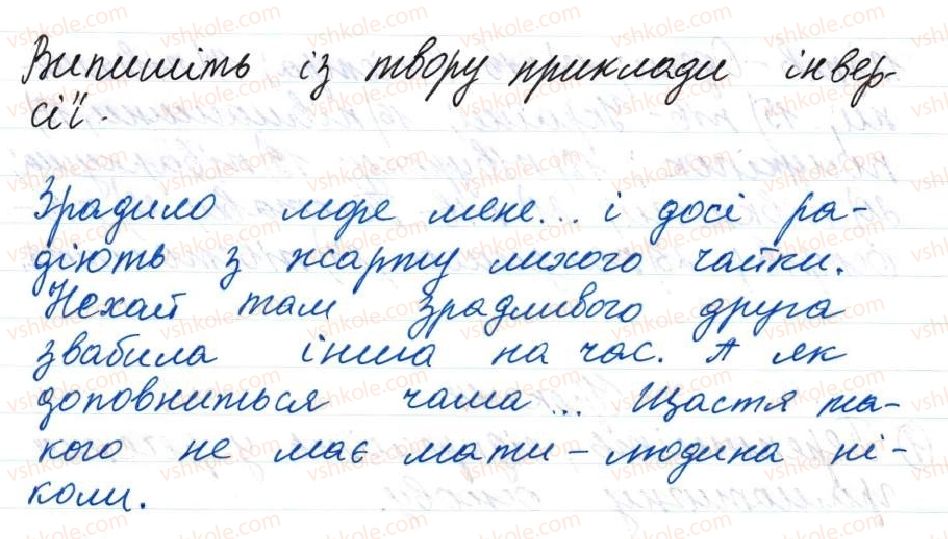 Випишіть із твору приклади інвер-
сії.
Зрадило море мене... і досі ра-
діють з жарту лихого чайки.
Нехай там зрадливого друга
звабила інша на час. А як
доповниться чаша... Щастя та-
кого не має мати - людина ні-
коли.